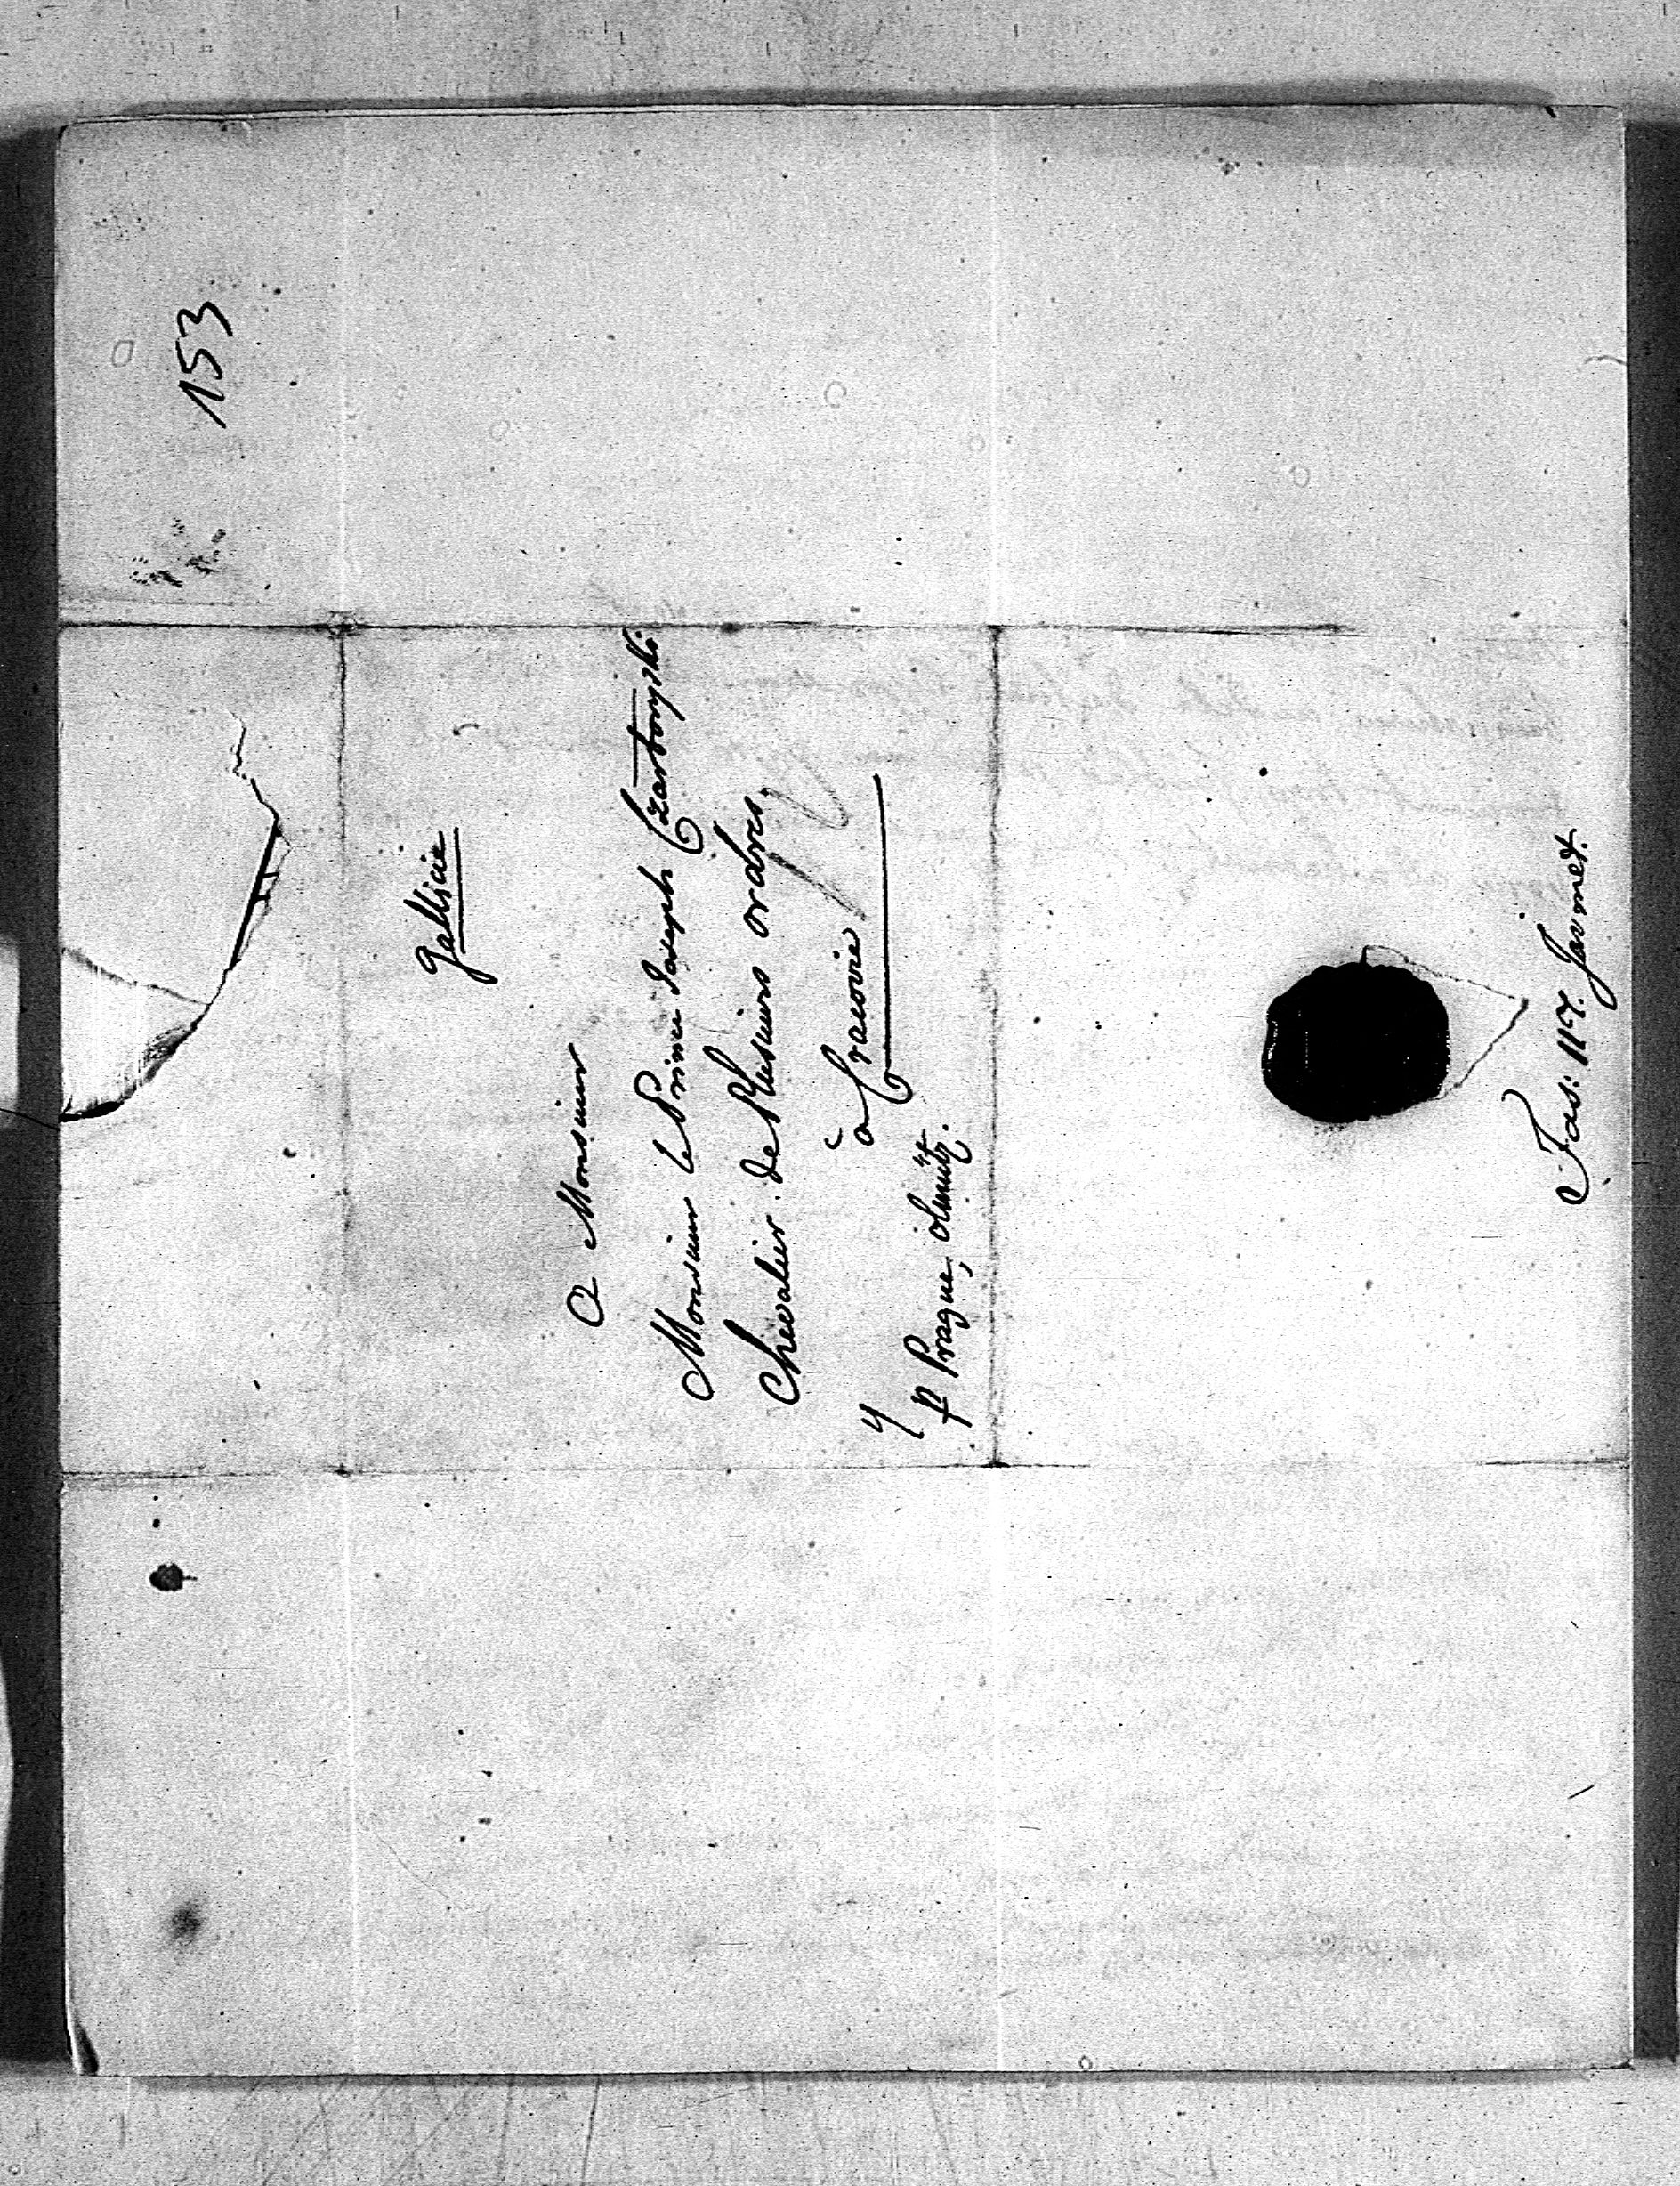 153
Gallicie
A Monsieur
Monsieur le Prince Joseph Czartoryski
Chevalier de Plusieurs ordres
à Cracovie
p Prague, olmutz.
Fas: 117.